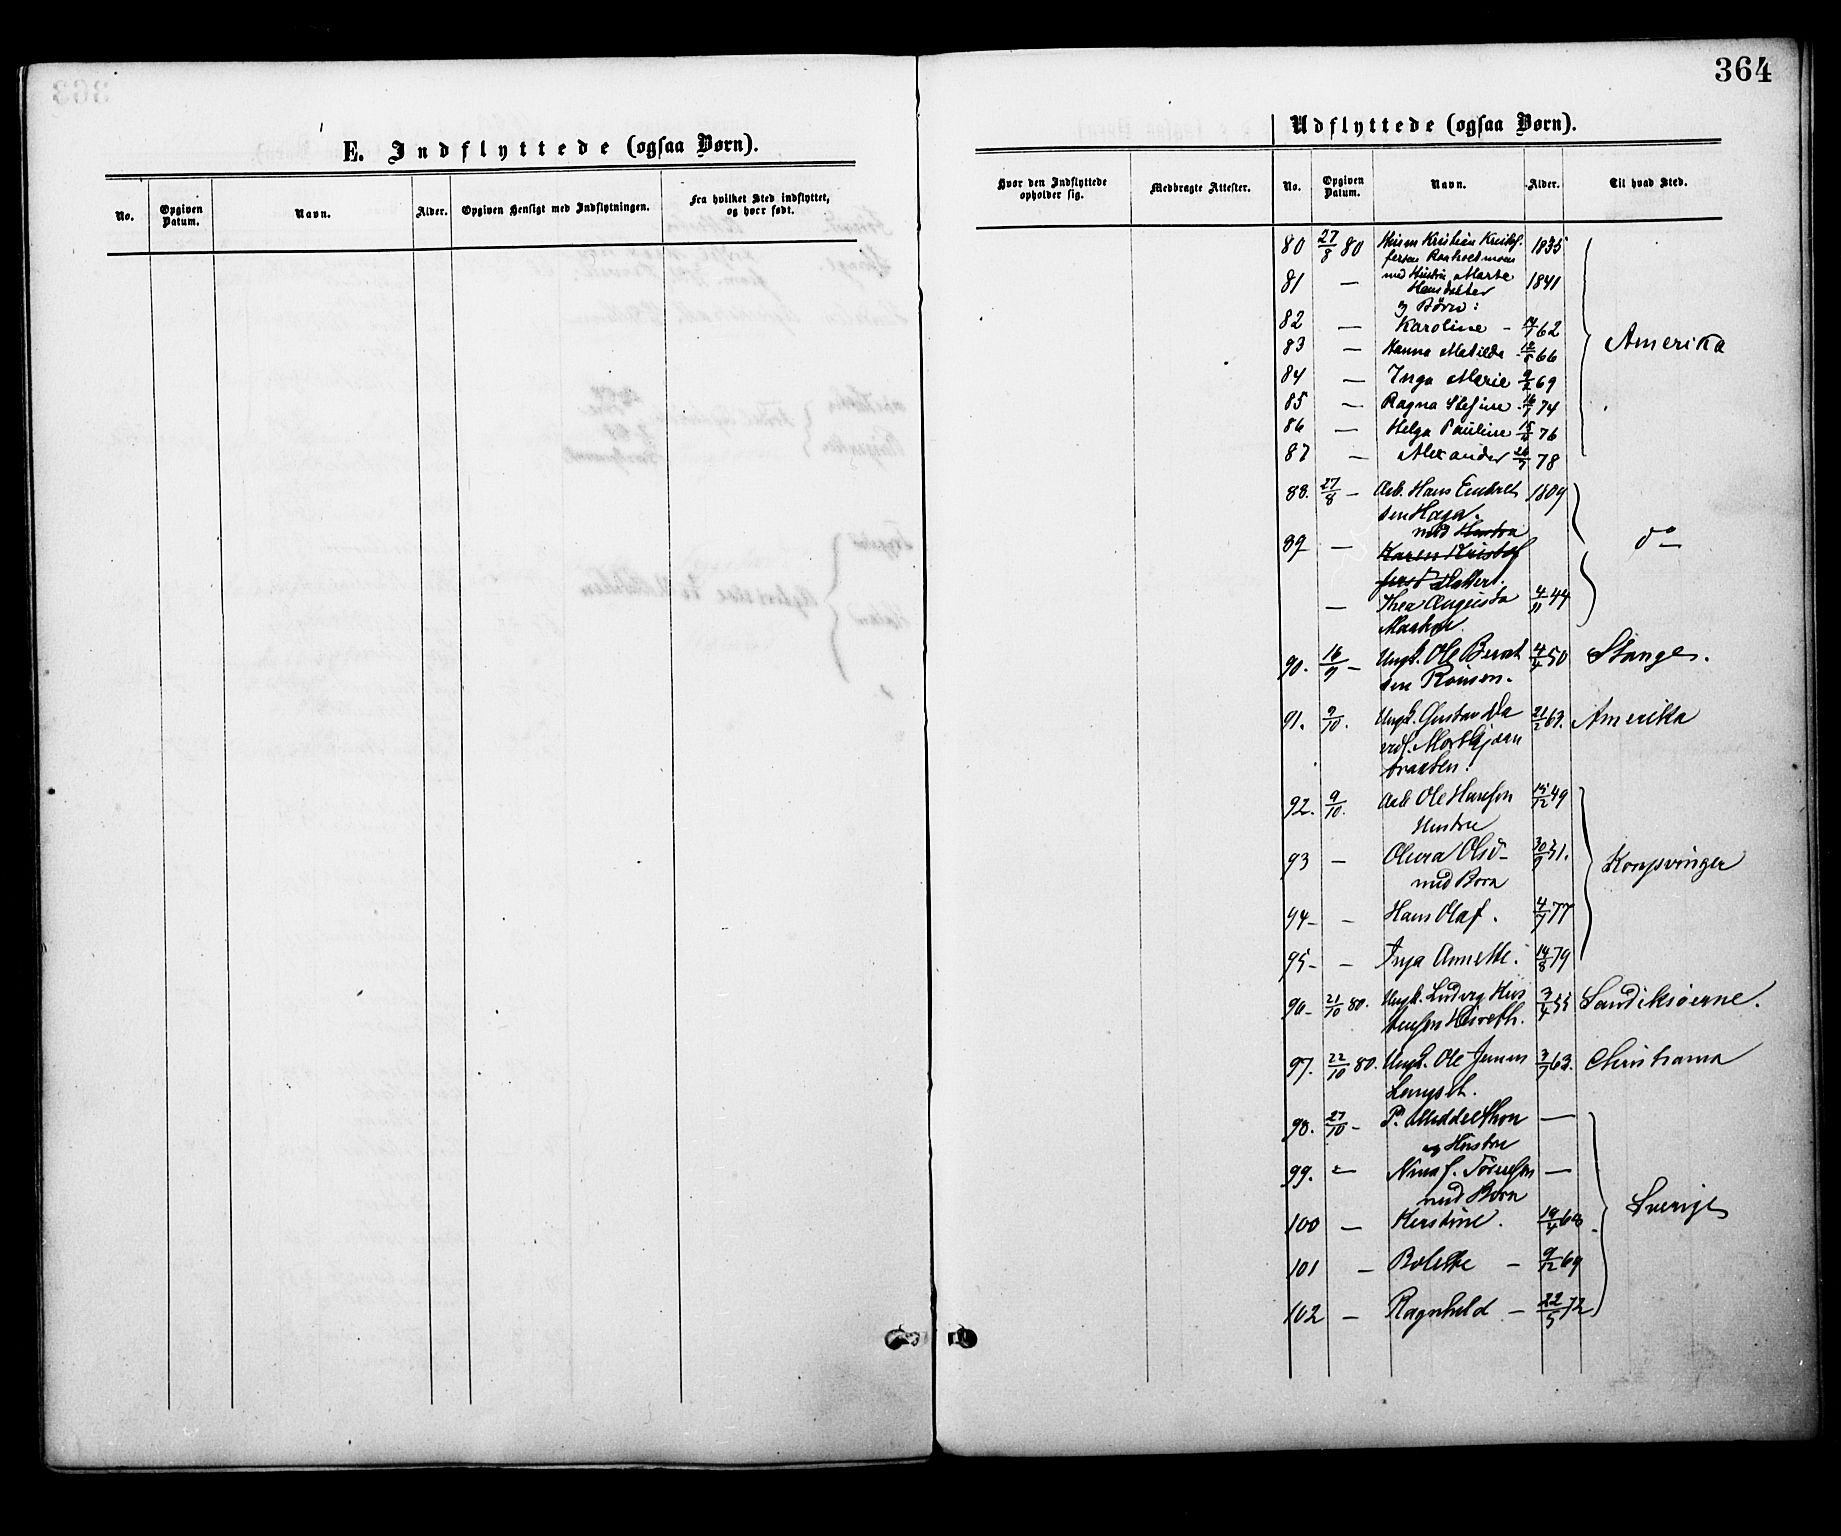 364
E. Indflyttede (ogsaa Børn).
No.
Opgiven Datum.
Navn.
Alder.
Opgiven Hensigt med Indflytningen.
Fra hvilket Sted indflyttet, og hvor født.
Udflyttede (ogsaa Børn).
Hvor den Indflyttede opholder sig.
Medbragte Attester.
No.
Opgiven Datum.
Navn.
Alder.
Til hvad Sted.
80 27/8 80 Kristian Kristof- 1835
fersen
81 — med Hustru Marte 1841
Hansdatter
og Børn:
82 — Karoline - /7 62
Amerika
83 — Hanna Matilde 66
84 — Inga Marie 9/2 69
85 — Ragna Stefine 16/7 74
86 — Helga Pauline 76
87 — Alexander 78
88. 27/8 — Arb. Hans Engebret 1809
sen Haga.
med Hustru
do
89 — Karen Kristof
fersd
— Thea Augusta 4/11 44
90. 16/9 — Ungk. Ole Bernt 4/4 50 Stange.
sen
91. 9/10. Ungk. Gustav Da 21/2 63. Amerika
vids.
braaten.
92. 9/10. Arb Ole Hansen 15/12 49
Hustru
93 — Olsd — 30/9 51.
Kongsvinger
med Børn
94 — — Hans Olaf. 4/7 77
95 — — Inga Annette. 14/8 79
96 — 21/10 80. Ungk. Ludvig Kris 3/4 55
tensen
97. 22/10 80. Ungk. Ole Jensen 3/7 63. Christiania
Langset.
98. 27/10 — P. Middelthon —
og Hustru
99. — Nina f. —
med Børn
Sverige
100 — Kirstine. 19/4 68
101 — Bolette — 9/12 69
102 — Ragnhild — 22/5 72